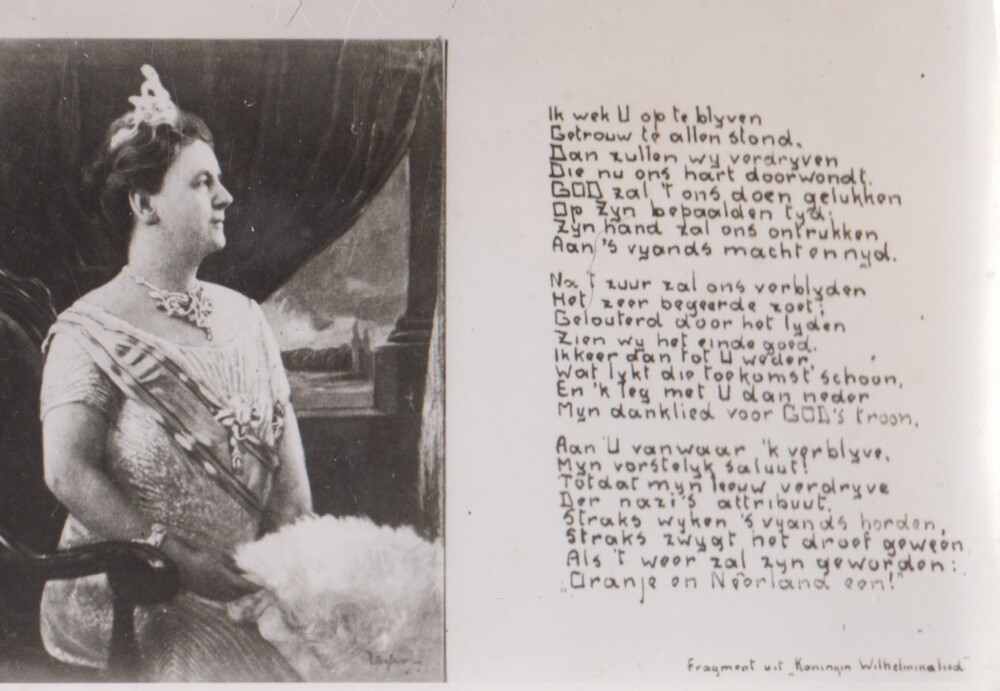 Ik wek U op te blyven
Getrouw te allen stond.
Dan zullen wy verdryven
Die nu ons hart doorwondt.
GOD zal 't ons doen gelukken
Op Zyn bepaalden tyd;
Zyn hand zal ons ontrukken
Aan 's vyands macht en nyd.
Na 't zuur zal ons verblyden
Het zeer begeerde zoet;
Gelouterd door het lyden
Zien wy het einde goed.
Ik keer dan tot U weder,
Wat lykt die toekomst schoon,
En 'k leg met U dan neder
Myn danklied voor GOD's troon.
Aan U vanwaar 'k verblyve,
Myn vorstelyk saluut!
Totdat myn leeuw verdryve
Der nazi's attribuut.
Straks wyken 's vyands horden,
Straks zwygt het droef geween
Als 't weer zal zyn geworden:
"Oranje en Neêrland een!"
Fragment uit „Koningin Wilhelminalied"